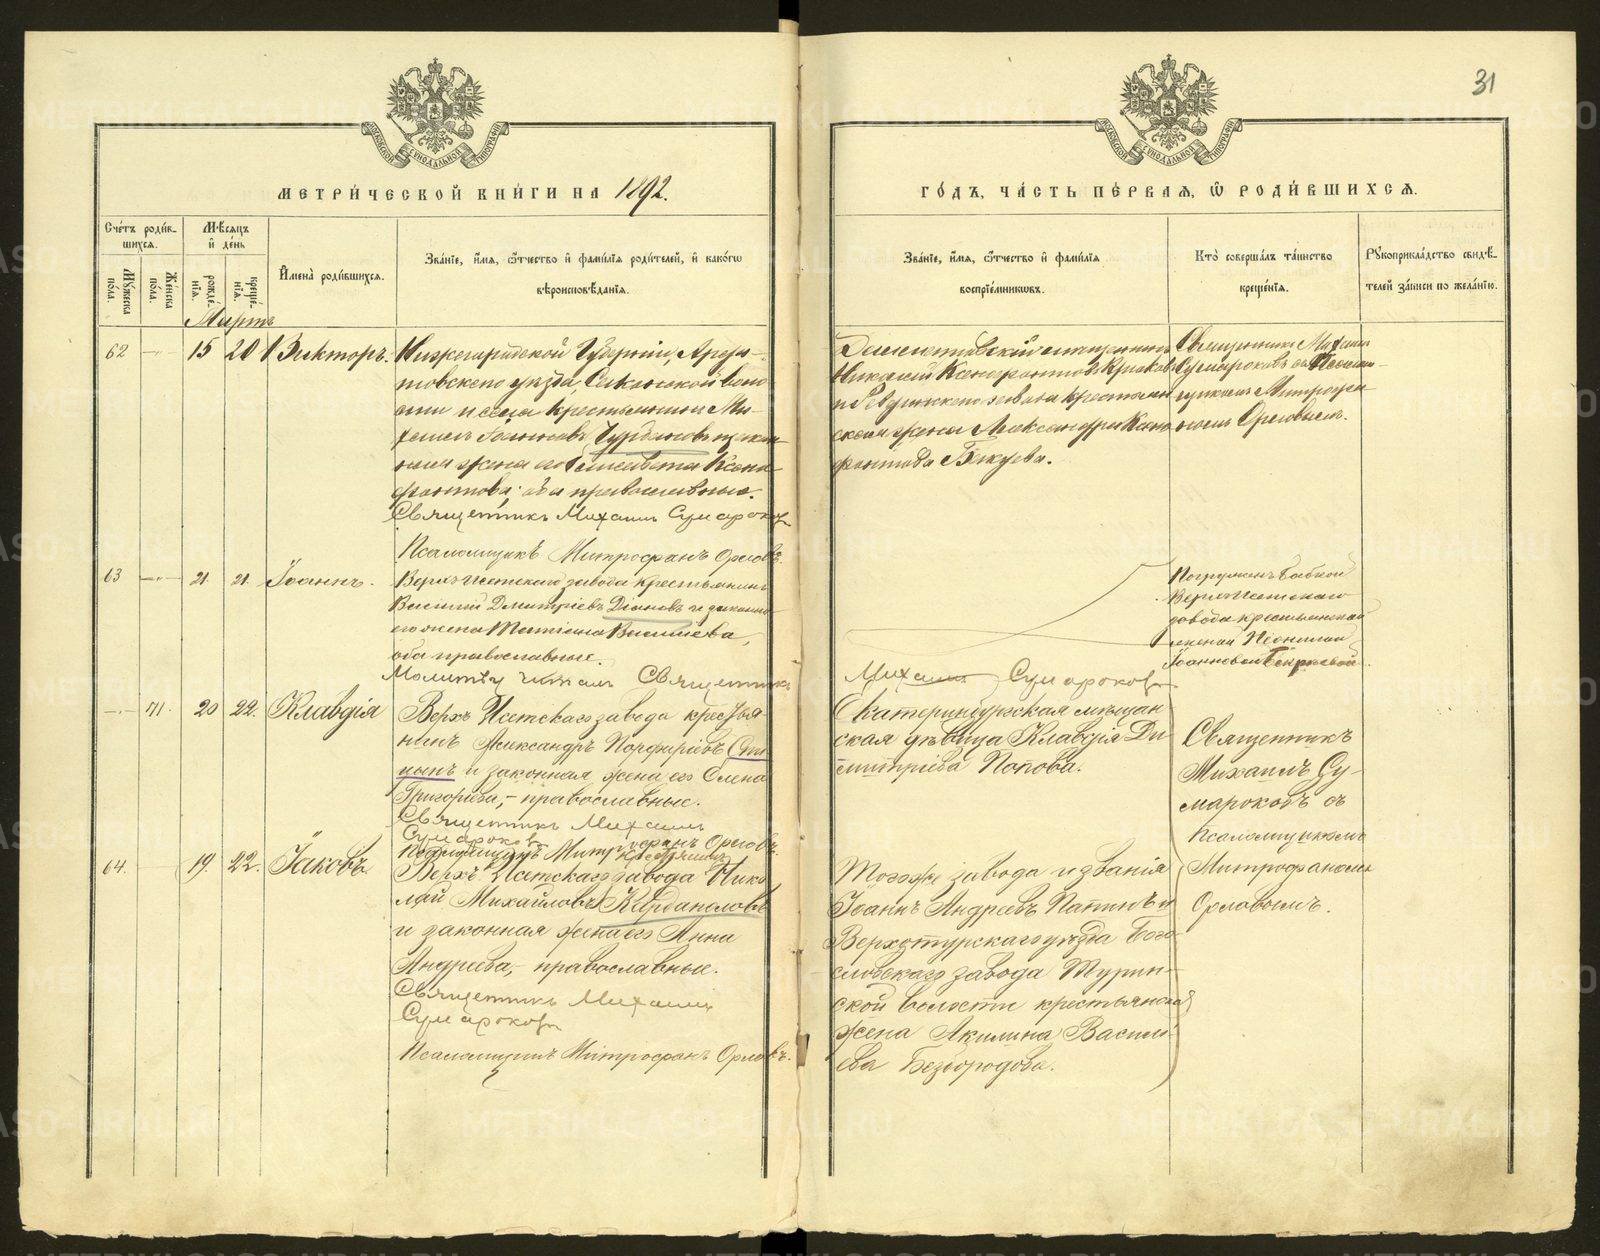 31
МЕТРИ́ЧЕСКОЙ КНИ́ГИ НА 1892.
ГО́ДЪ, ЧА́СТЬ ПЕ́РВАЯ, Ѿ РОДИ́ВШИХСЯ.
Сче́тъ роди́вшихся.
Му́жеска по́ла.
Же́нска по́ла.
Мѣ́сяцъ и де́нь
рожде́нїя.
креще́нїя.
И́мена̀ роди́вшихся.
Зва́нїе, и́мя, ѻ́тчество и фами́лїя роди́телей, и како́гѡ
вѣроисповѣ́данїя.
Зва́нїе, и́мя, ѻ́тчество и фами́лїя
воспрїе́мниковъ.
Кто̀ соверша́лъ та́инство
креще́нїя.
Рꙋкоприкла́дство свидѣ́-
телей за́писи по жела́нїю.
Мартъ
62
15
20
Викторъ.
Нижегородской Губерніи, Арда-
товскаго уѣзда,
села крестьянинъ Ми-
хаилъ Іоанновъ
ная жена его Елисавета Ксено-
фонтова; оба православные.
Священникъ Михаилъ Сумароков
Псаломщикъ Митрофанъ Орловъ.
Николай Ксенофонтовъ
и Ревдинскаго завода крестьян
ская жена Александра Ксено
фонтова
Священникъ Михаил
Сумароковъ съ Псалом-
щикомъ Митрофа
номъ Орловымъ.
63
21.
21.
Іоаннъ.
Верхъ-Исетскаго завода крестьянинъ
Василій Дмитріевъ Діановъ и законная
его жена Татіана Васильева,
оба православные.
Молитву читалъ Священникъ
Михаилъ Сумароков
Погруженъ бабкой
Верхъ-Исетскаго
завода крестьянской
Іоанновой
71.
20
22.
Клавдія
Верхъ Исетскаго завода крестья-
нинъ Александръ Порфирьевъ
и законная жена его Елена
Григорьева, - православные.
Священникъ Михаилъ
Сумароковъ
Псаломщикъ Митрофанъ Орловъ.
Екатеринбургская мѣщан
ская дѣвица Клавдія Ди
митріева Попова.
Священникъ
Михаилъ Су-
мароковъ съ
Псаломщикомъ
Митрофаномъ
Орловымъ.
64.
19.
22.
Іаковъ
крестьянинъ
Верхъ Исетскаго завода Нико
лай Михайловъ Кардаполовъ
и законная жена его Анна
Андреева, - православные.
Священникъ Михаилъ
Сумароков
Псаломщикъ Митрофанъ Орловъ.
Тогоже завода и званія
Іоаннъ Андреевъ Папинъ и
Верхотурскаго уѣзда Бого
словскаго завода Турин-
ской волости крестьянская
жена Акилина Василь-
ева Безбородова.